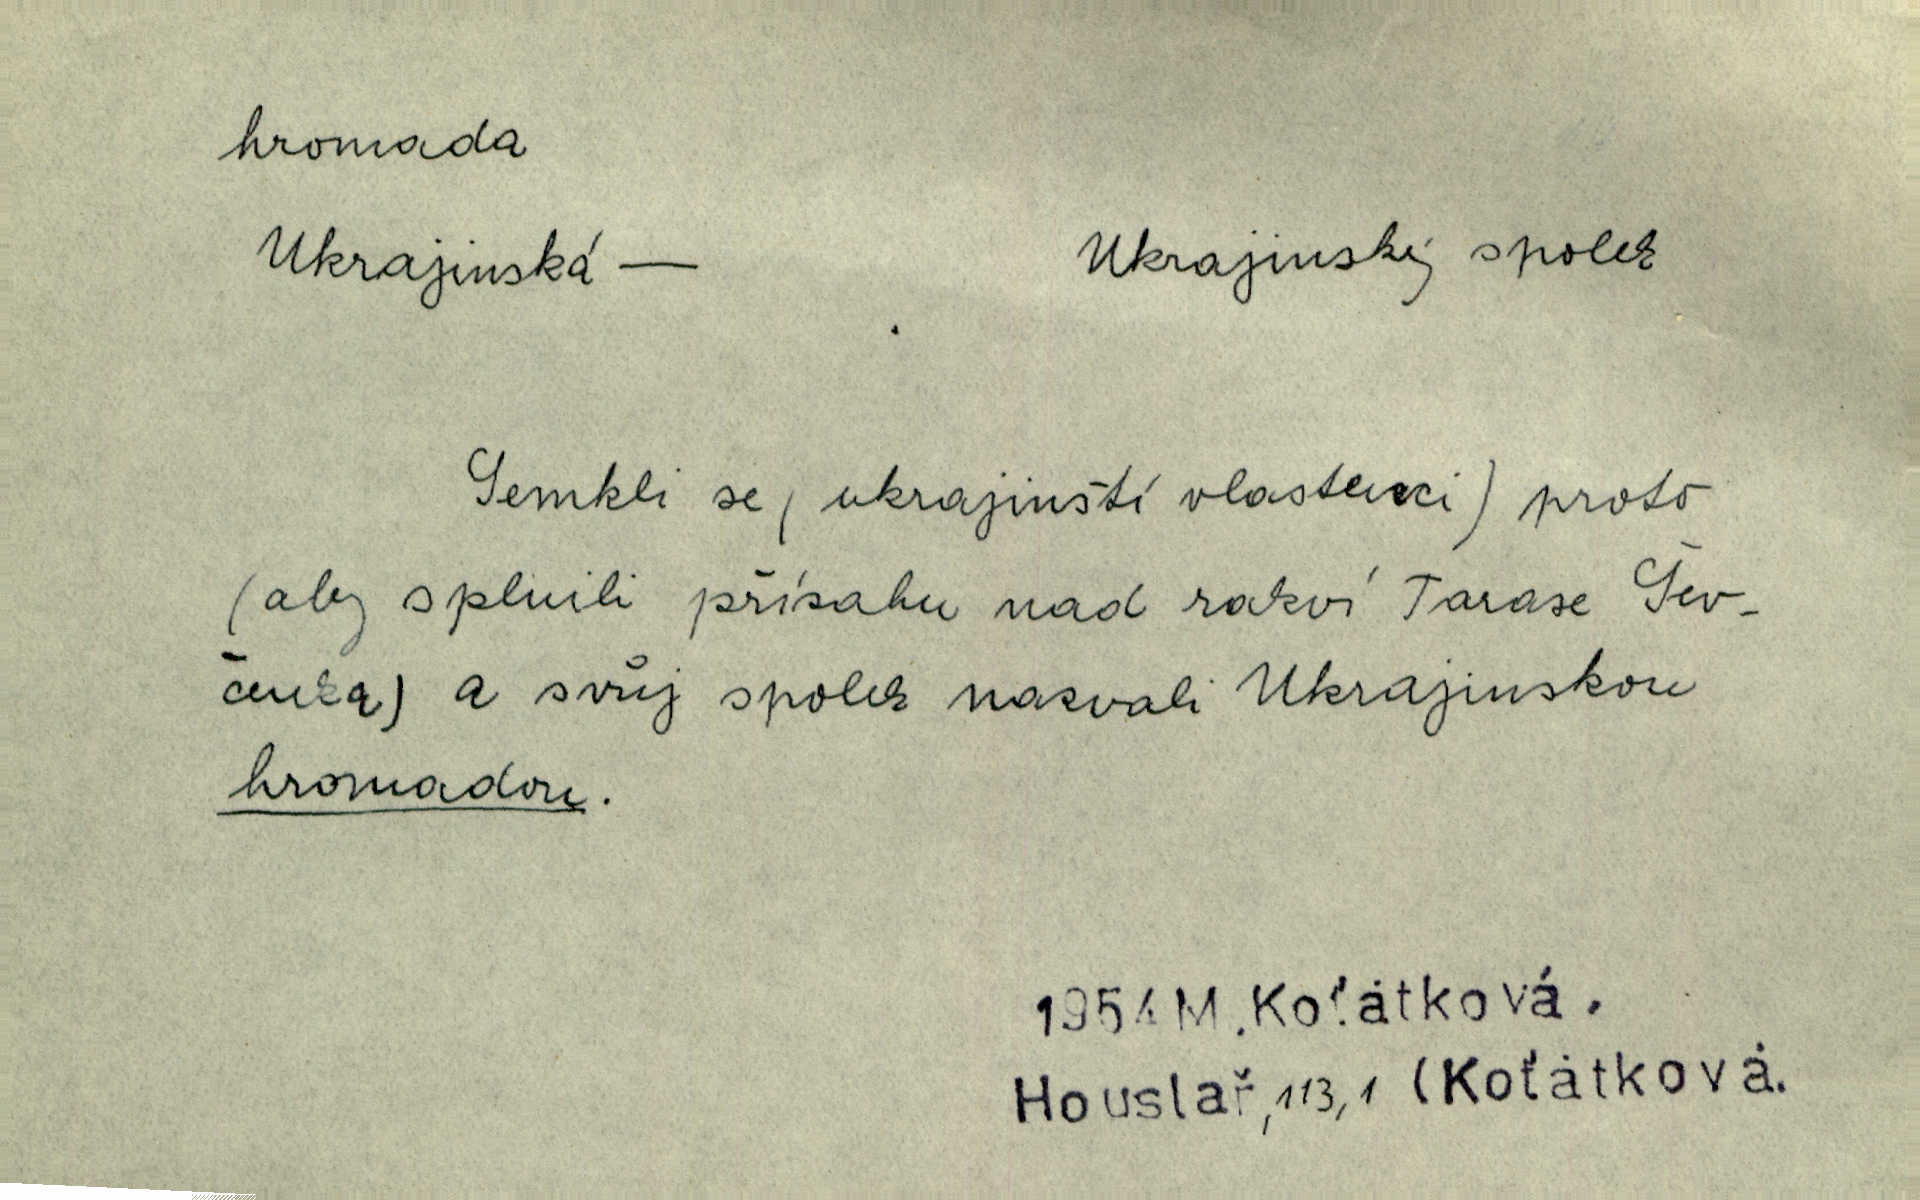 hromada
Ukrajinská — Ukrajinský spolek
Semkli se (ukrajinští vlastenci) proto
(aby splnili přísahu nad rakví Tarase Šev-
čenka) a svůj spolek nazvali Ukrajinskou
hromadou.
1954 M. Koťátková.
Houslař, 113, 1 (Koťátková.